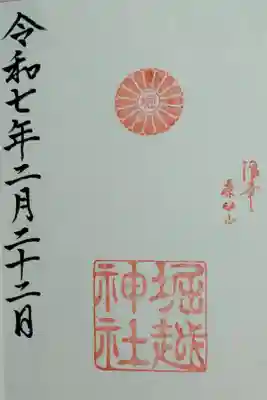 堀越
神社
令和七年二月二十二日